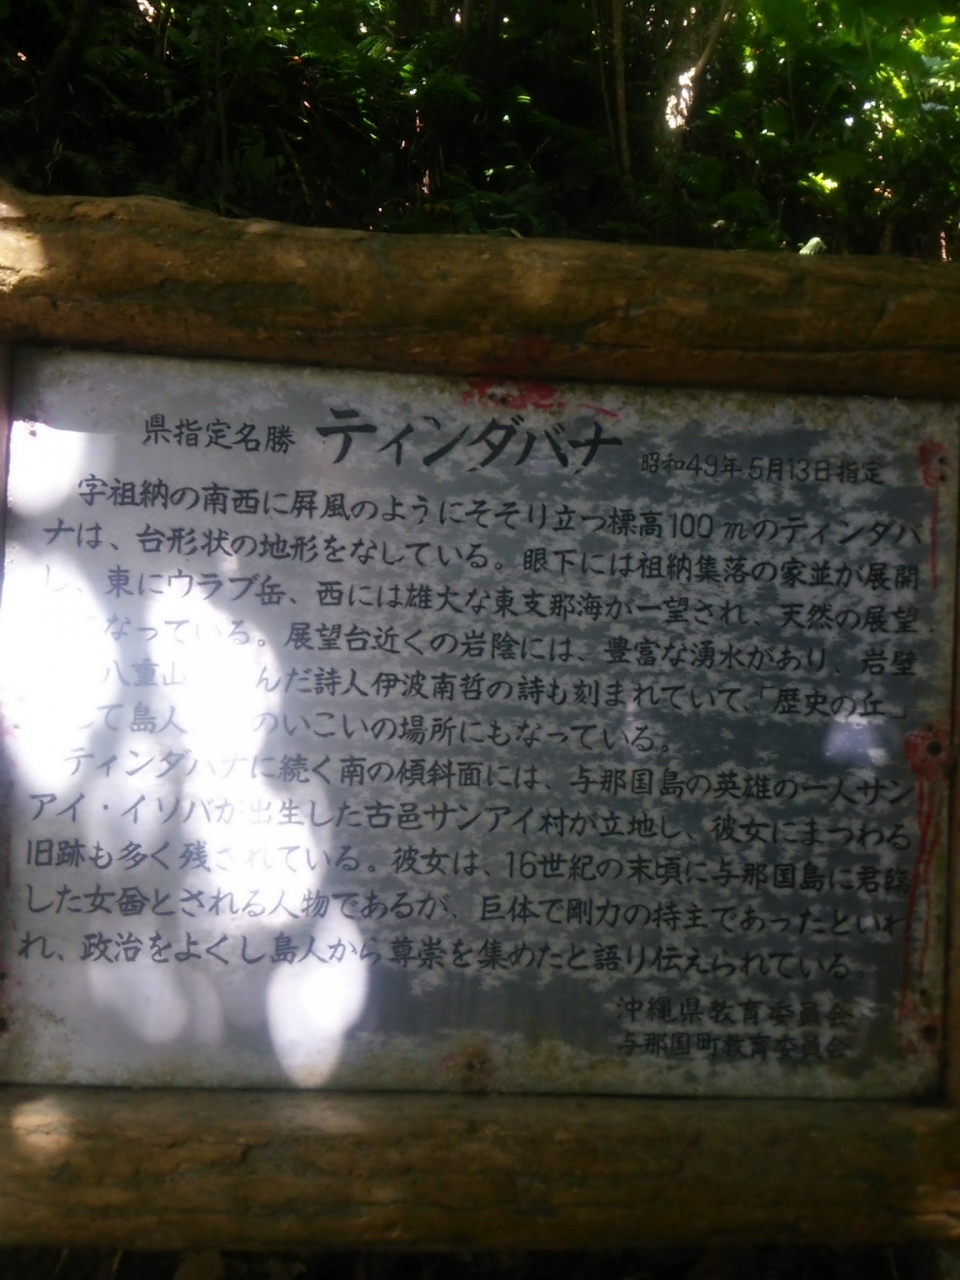 県指定名勝 ティンダバナ 昭和49年5月13日指定
字祖納の南西に屏風のようにそそり立つ標高100mのティンダバ
ナは、台形状の地形をなしている。眼下には祖納集落の家並が展開
し、東にウラブ岳、西には雄大な東支那海が一望され、天然の展望
になっている。展望台近くの岩陰には、豊富な湧水があり、岩壁
八重山 んだ詩人伊波南哲の詩も刻まれていて、「歴史の丘」
て島人 のいこいの場所にもなっている。
ティンダバナに続く南の傾斜面には、与那国島の英雄の一人サン
アイ・イソバが出生した古邑サンアイ村が立地し、彼女にまつわる
旧跡も多く残されている。彼女は、16世紀の末頃に与那国島に君臨
した女酋とされる人物であるが、巨体で剛力の持主であったといわ
れ、政治をよくし島人から尊崇を集めたと語り伝えられている
沖縄県教育委員会
与那国町教育委員会